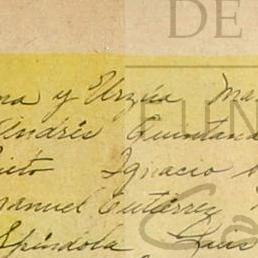 DE
na y Urzúa Ma
Andrés Quintana
LEN
ieto Ignacio
manuel Gutiérrez
Espíndola Luis